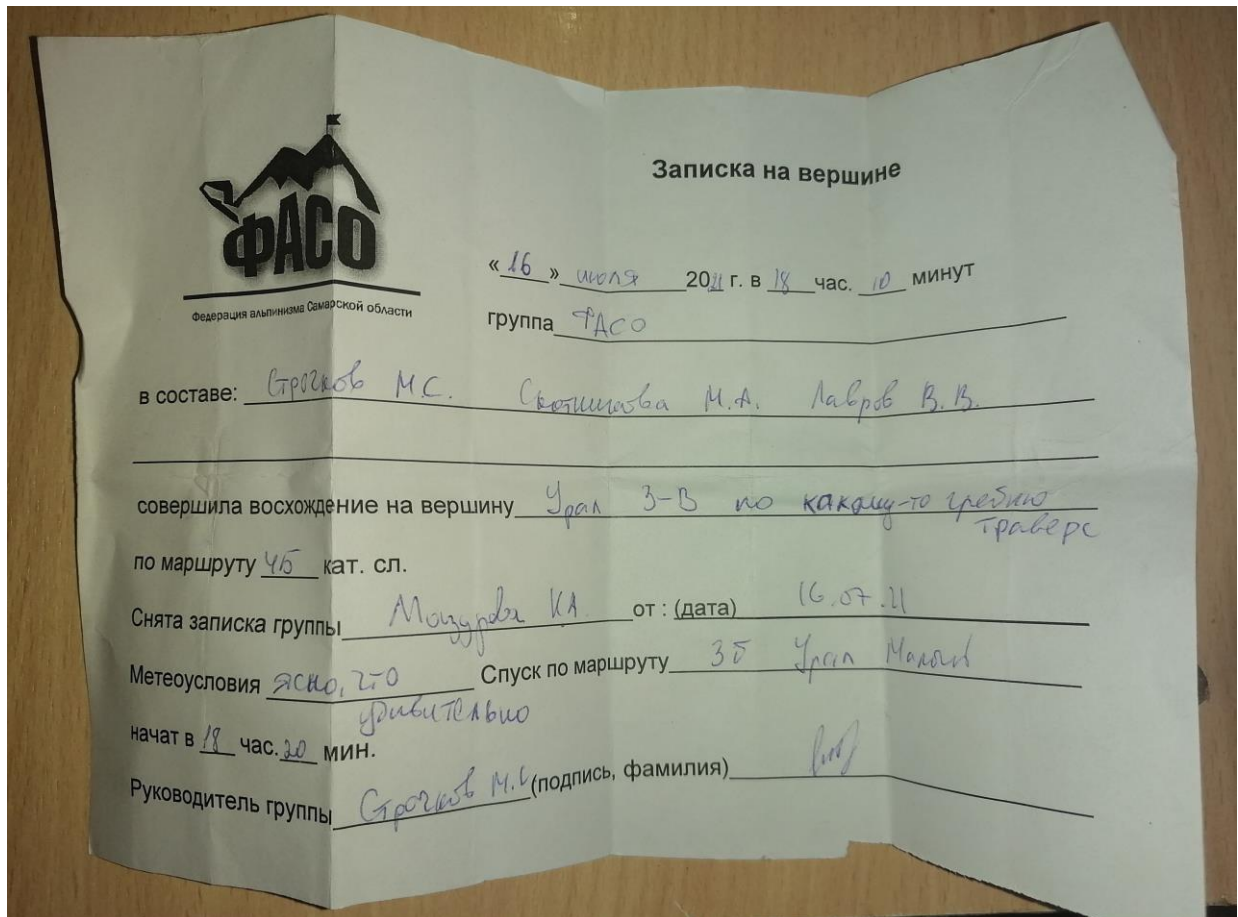 ФАСО
Федерация альпинизма Самарской области
Записка на вершине
«16» июля 2021 г. в 18 час. 10 минут
группа ФАСО
в составе: Строчков М.С. М.А. Лавров В.В.
совершила восхождение на вершину Урал 3-В по какому-то гребню
траверс
по маршруту 4Б кат. сл.
Снята записка группы Мазурова К.А. от : (дата) 16.07.21
Метеоусловия ясно, что Спуск по маршруту 3Б Урал Малый
удивительно
начат в 18 час. 20 мин.
Руководитель группы Строчков М.С. (подпись, фамилия)